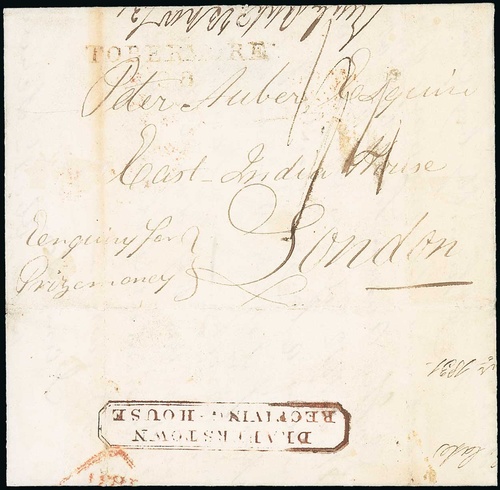 TOBERMORE
8
Peter Auber, Esquire
East-India House
London
Enquiry for
Prizemoney
DRAPERSTOWN
RECEIVING-HOUSE
1831